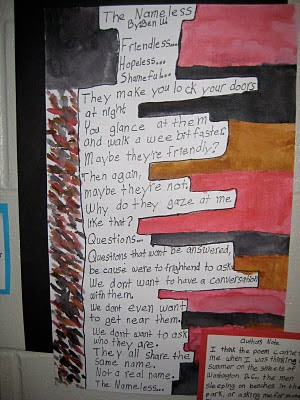 The Nameless
By: Ben W.
Friendless...
Hopeless...
Shameful...
They make you lock your doors
at night,
You glance at them
and walk a wee bit faster,
Maybe they're friendly?
Then again,
maybe they're not.
Why do they gaze at me
like that?
Questions...
Questions that want be answered,
be cause were to frightend to ask
We dont want to have a conversation
with them,
We dont even want
to get near them.
We dont want to ask
who they are.
They all share the
same name.
Not a real name.
The Nameless...
Authors Note
I think the poem came
me when I was thinking
summer on the streets of
Washington D.C. the men
sleeping on benches in the
park, or asking me for mon